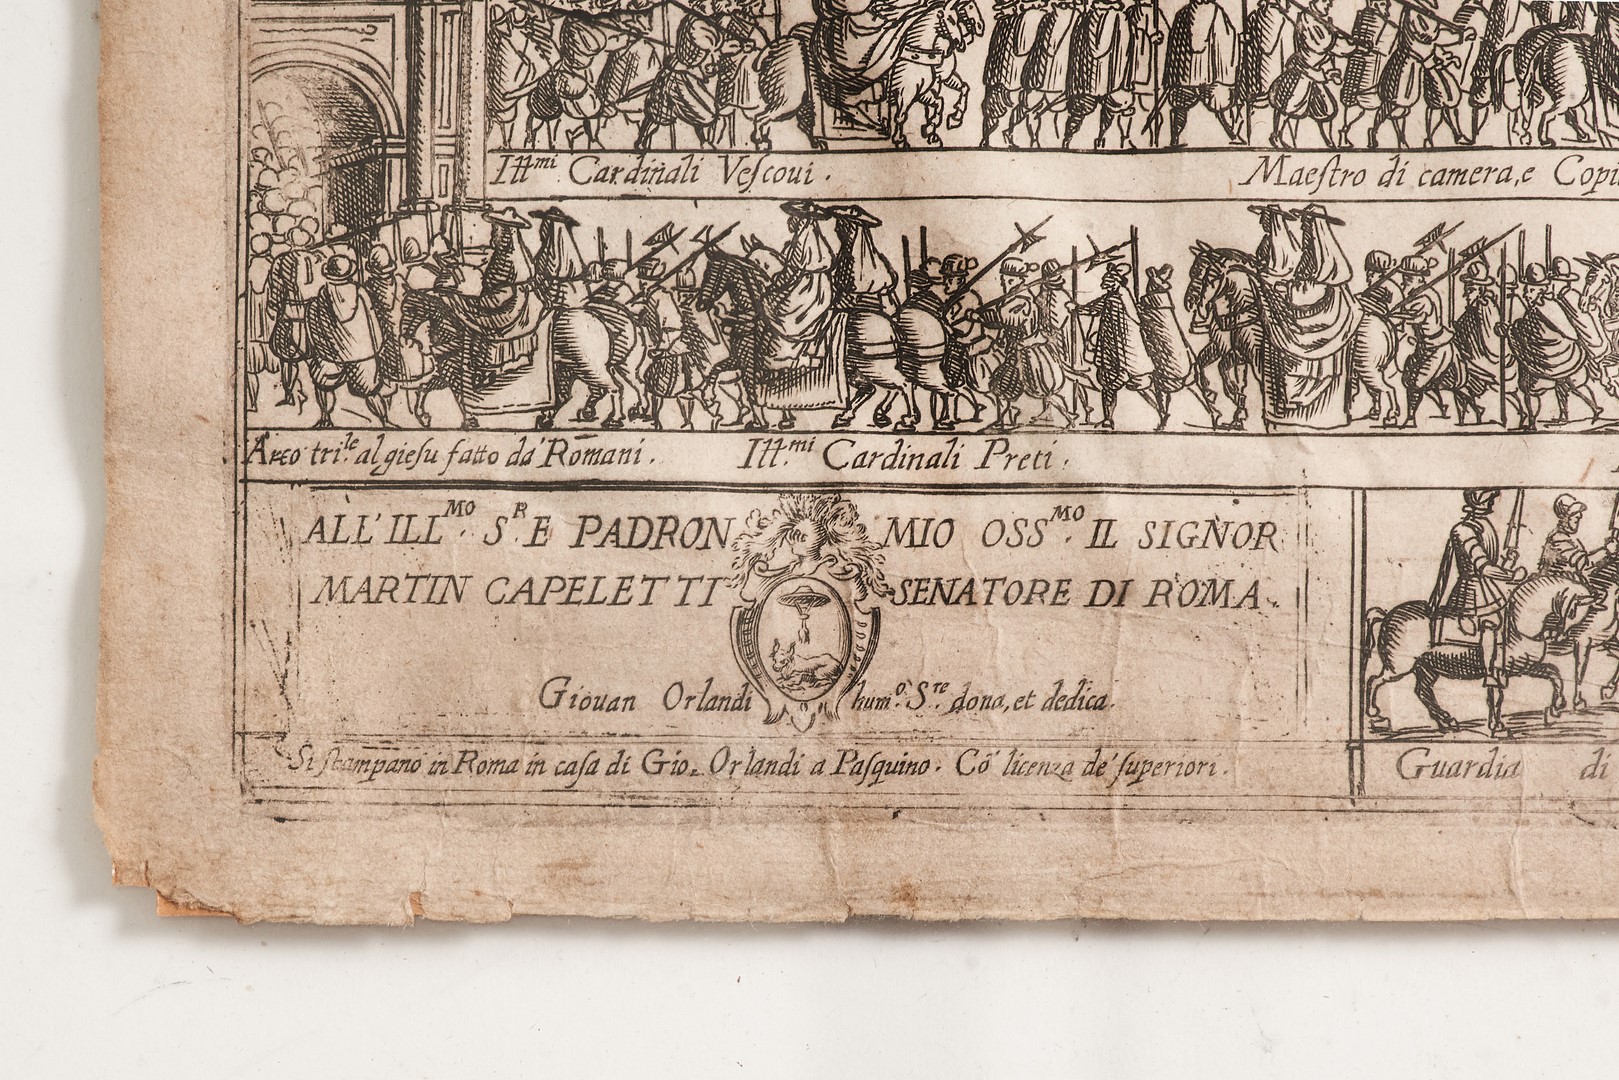 Ill.mi Cardinali Veſcoui .
Maeſtro di camera, e Copi
Arco tri.le al gieſu fatto da' Romani .
Ill.mi Cardinali Preti .
ALL' ILL.MO S.R E PADRON MIO OSS.MO IL SIGNOR
MARTIN CAPELETTI SENATORE DI ROMA .
Giouan Orlandi hum.o S.re dona, et dedica .
Si ſtampano in Roma in caſa di Gio. Orlandi a Paſquino . Cō licenza de' ſuperiori .
Guardia di